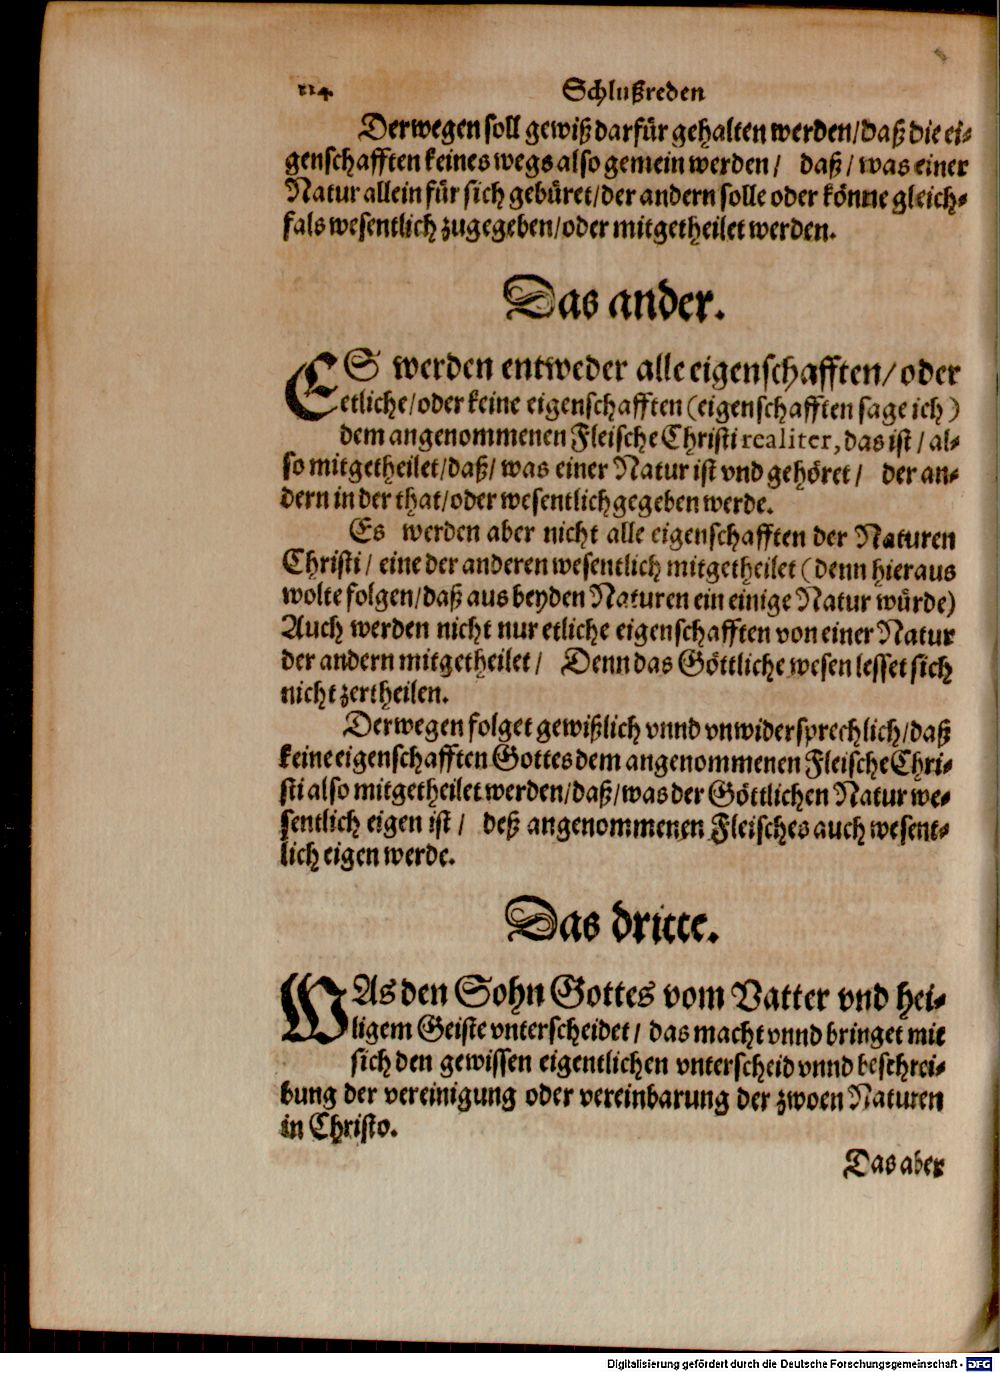 114. Schlußreden
Derwegen soll gewiß darfür gehalten werden/daß die ei-
genschafften keines wegs also gemein werden/ daß/ was einer
Natur allein für sich gebüret/der andern solle oder könne gleich-
fals wesentlich zugegeben/oder mitgetheilet werden.
Das ander.
ES werden entweder alle eigenschafften/oder
etliche/oder keine eigenschafften (eigenschafften sage ich)
dem angenommenen Fleische Christi realiter, das ist/ al-
so mitgetheilet/daß/ was einer Natur ist vnd gehöret/ der an-
dern in der that/oder wesentlich gegeben werde.
Es werden aber nicht alle eigenschafften der Naturen
Christi/ eine der anderen wesentlich mitgetheilet (denn hieraus
wolte folgen/daß aus beyden Naturen ein einige Natur würde)
Auch werden nicht nur etliche eigenschafften von einer Natur
der andern mitgetheilet/ Denn das Göttliche wesen lesset sich
nicht zertheilen.
Derwegen folget gewißlich vnnd vnwidersprechlich/daß
keine eigenschafften Gottes dem angenommenen Fleische Chri-
sti also mitgetheilet werden/daß/was der Göttlichen Natur we-
sentlich eigen ist/ deß angenommenen Fleisches auch wesent-
lich eigen werde.
Das dritte.
WAs den Sohn Gottes vom Vatter vnd hei-
ligem Geiste vnterscheidet/ das macht vnnd bringet mit
sich den gewissen eigentlichen vnterscheid vnnd beschrei-
bung der vereinigung oder vereinbarung der zwoen Naturen
in Christo.
Das aber
Digitalisierung gefördert durch die Deutsche Forschungsgemeinschaft - DFG